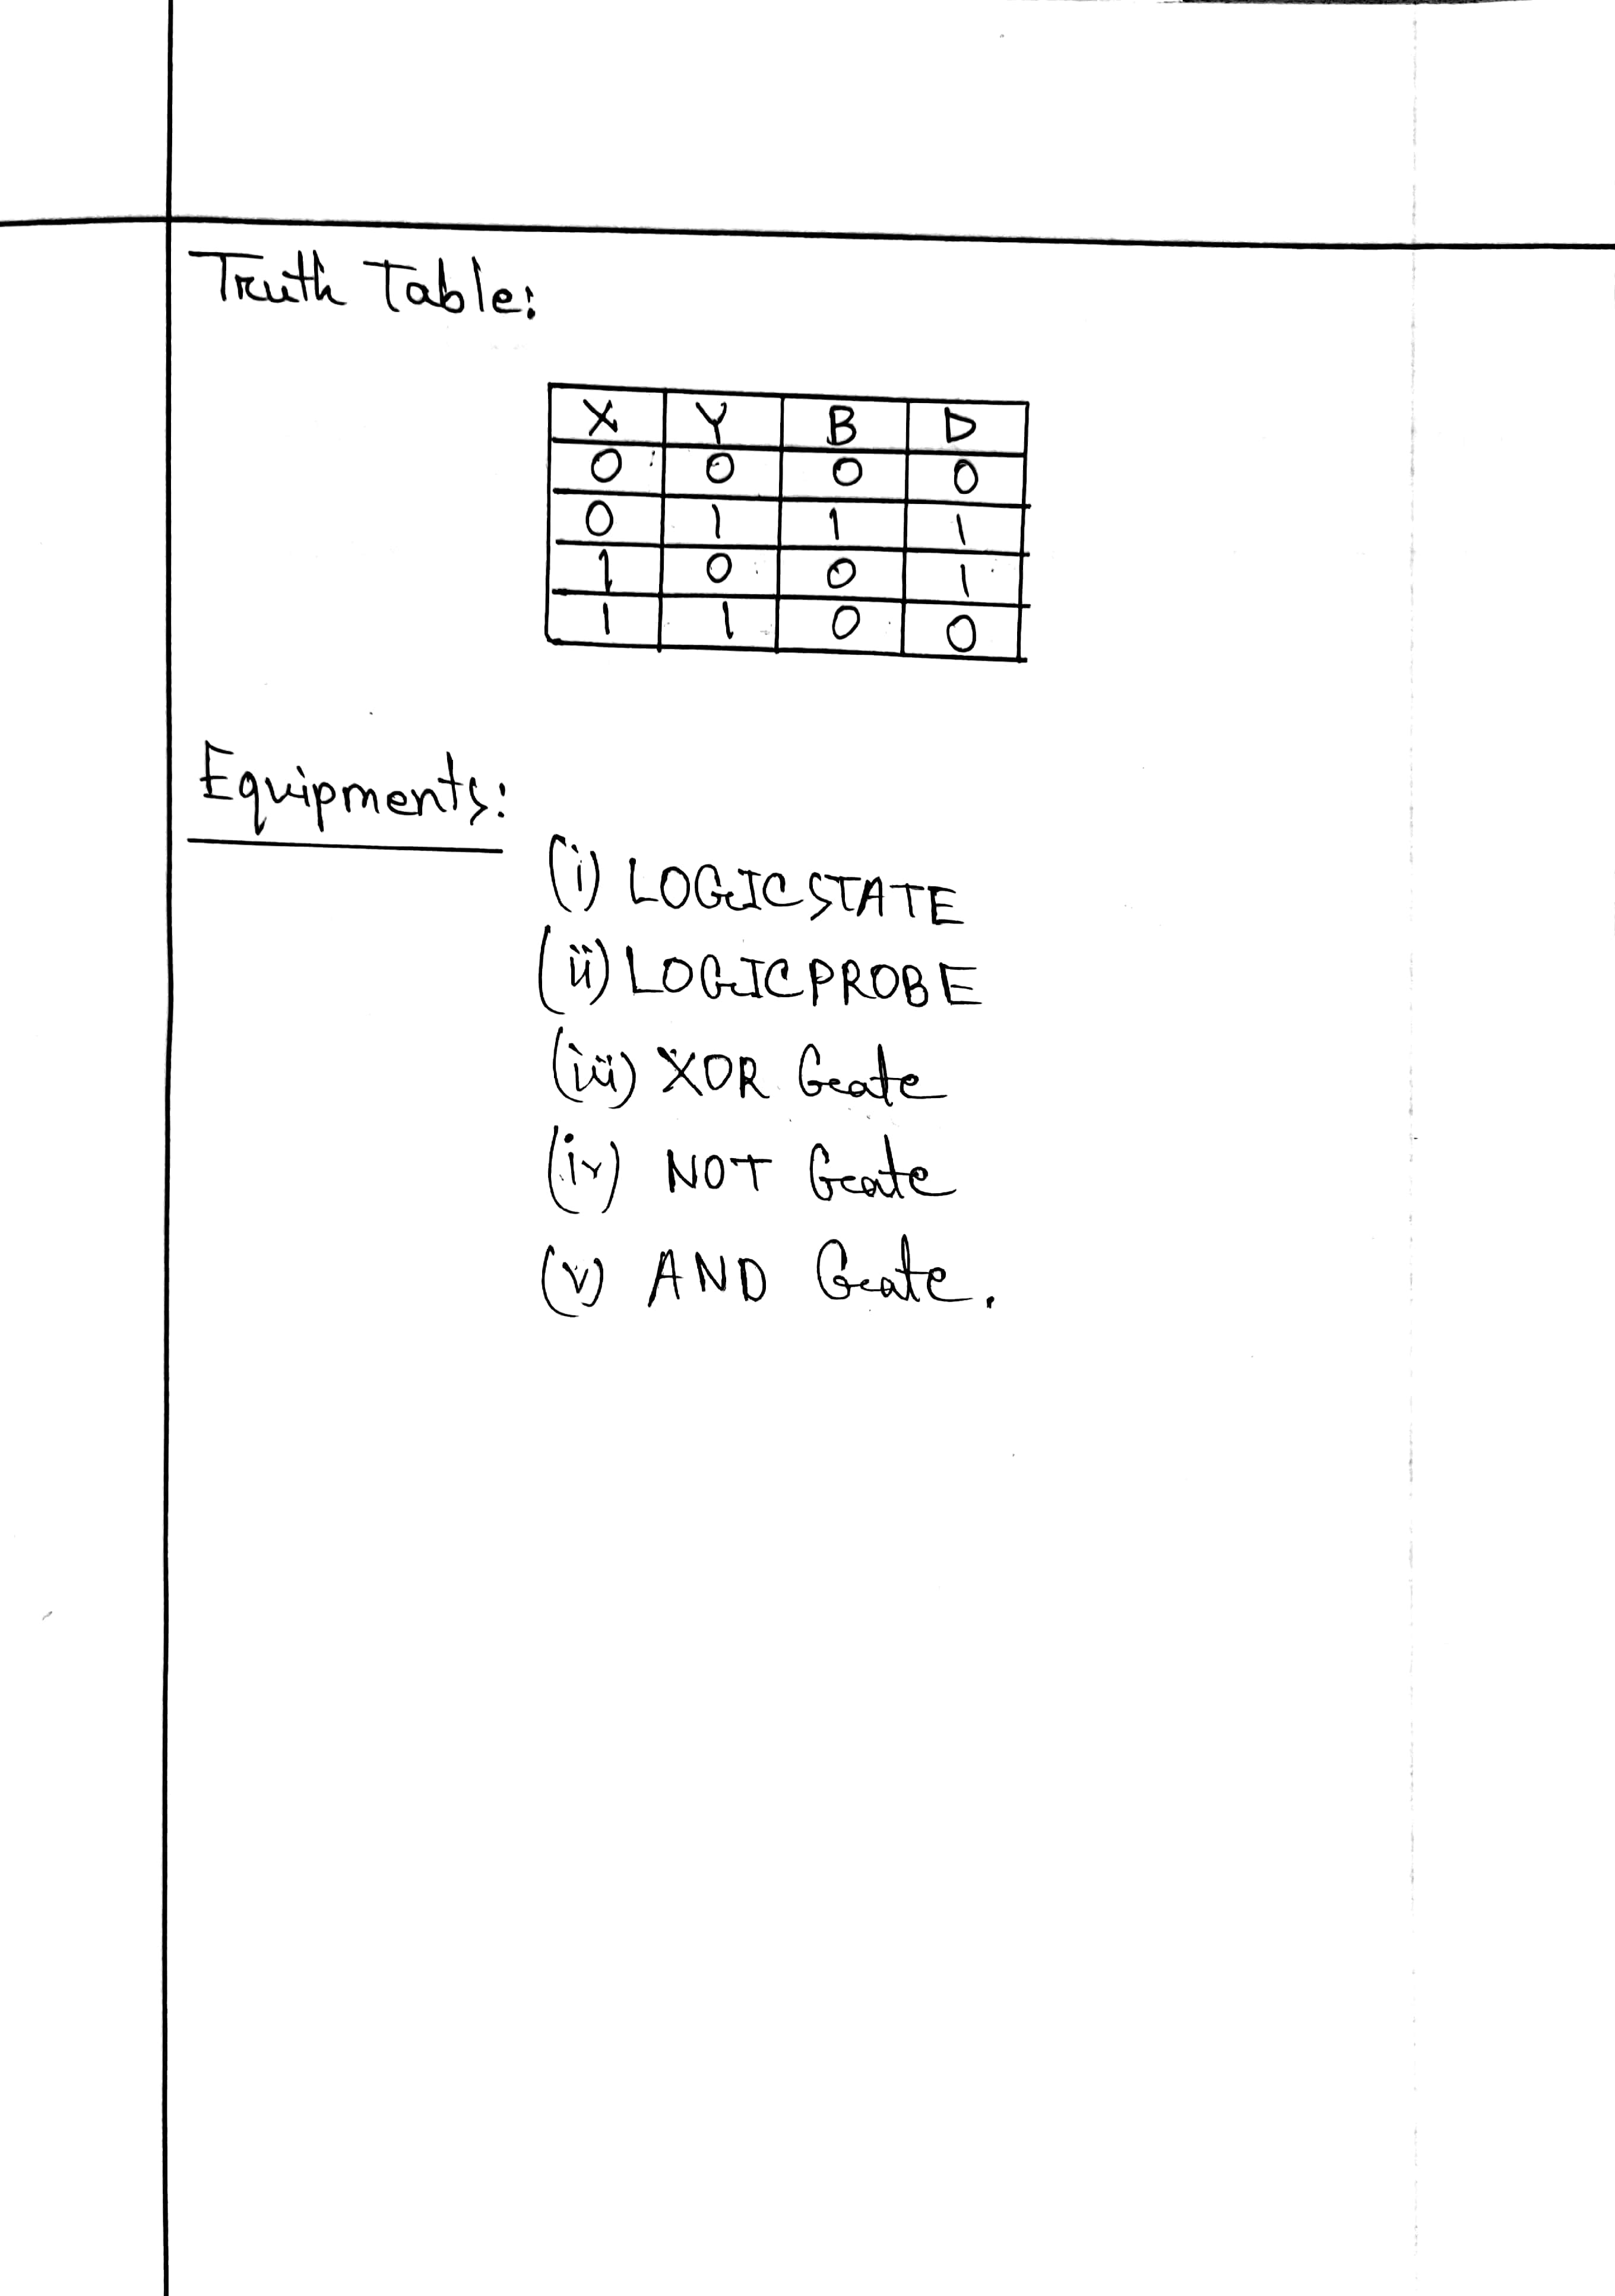 Truth Table:
X Y B D
0 0 0 0
0 1 1 1
1 0 0 1
1 1 0 0
Equipments:
(i) LOGICSTATE
(ii) LOGICPROBE
(iii) XOR Gate
(iv) NOT Gate
(v) AND Gate.